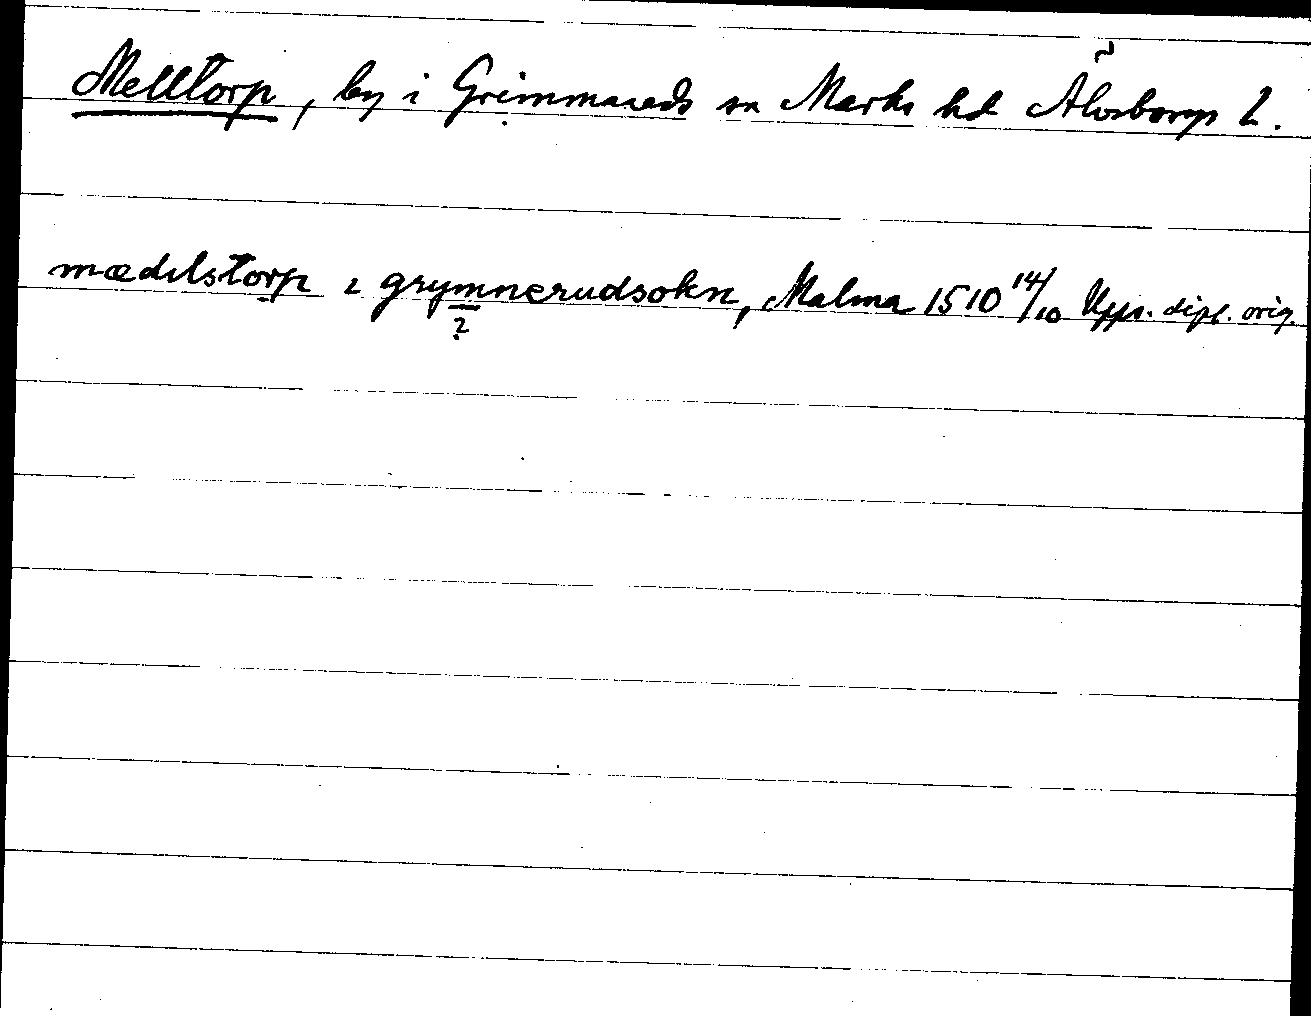 Melltorp, by i Grimmareds sn Marks hd Älvsborgs l.
mædelstorp i grymnerudsokn, Malma 1510 14/10 Upps. dipl. orig.
?